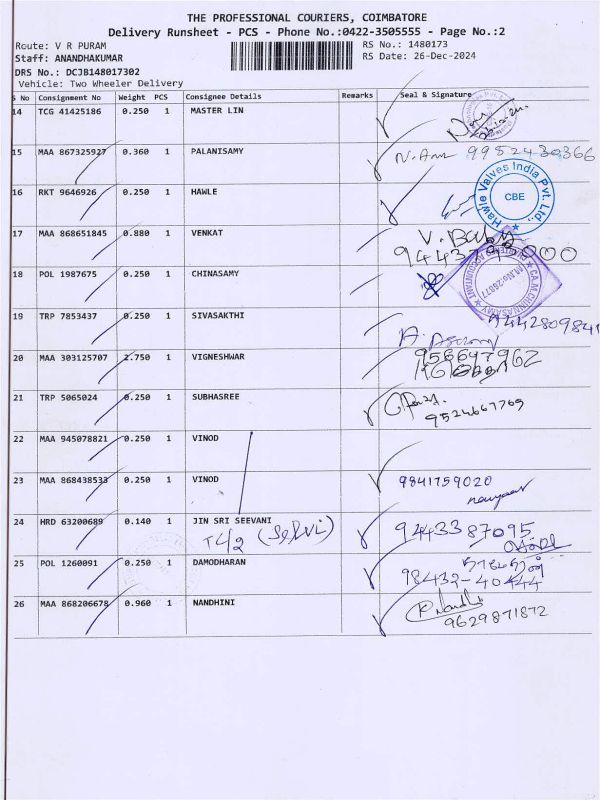 THE PROFESSIONAL COURIERS, COIMBATORE
Delivery Runsheet - PCS - Phone No.:0422-3505555 - Page No.:2
Route: V R PURAM
RS No.: 1480173
Staff: ANANDHAKUMAR
RS Date: 26-Dec-2024
DRS No.: DCJB148017302
Vehicle: Two Wheeler Delivery
S No Consignment No Weight PCS Consignee Details Remarks Seal & Signature
14 TCG 41425186 0.250 1 MASTER LIN
15 MAA 867325927 0.360 1 PALANISAMY 9952430366
16 RKT 9646926 0.250 1 HAWLE
Hawle Valves India Pvt. Ltd.,
CBE
17 MAA 868651845 0.880 1 VENKAT V. Baby
18 POL 1987675 0.250 1 CHINASAMY
CA.M.CHINNASAMY
19 TRP 7853437 0.250 1 SIVASAKTHI
20 MAA 303125707 2.750 1 VIGNESHWAR 956647962
21 TRP 5065024 0.250 1 SUBHASREE
9524667769
22 MAA 945078821 0.250 1 VINOD
23 MAA 868438533 0.250 1 VINOD 9841759020
24 HRD 63200689 0.140 1 JIN SRI SEEVANI
TC/2 (Selvi) 9443387095
25 POL 1260091 0.250 1 DAMODHARAN
98432-40444
26 MAA 868206678 0.960 1 NANDHINI
9629871872